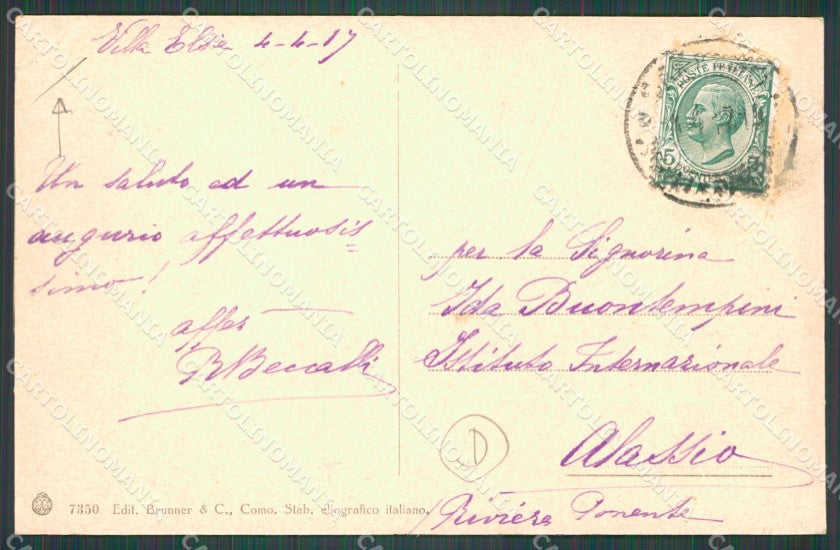 Villa Elsie 4-4-17
Un saluto ed un
augurio affettuosis=
simo!
aff
R Beccalli
POSTE ITALIANE
5
per la Signorina
Ida Buontempini
Istituto Internazionale
Alassio
Riviera Ponente
D
7350 Edit. Brunner & C., Como. Stab. eliografico italiano.
CARTOLINOMANIA